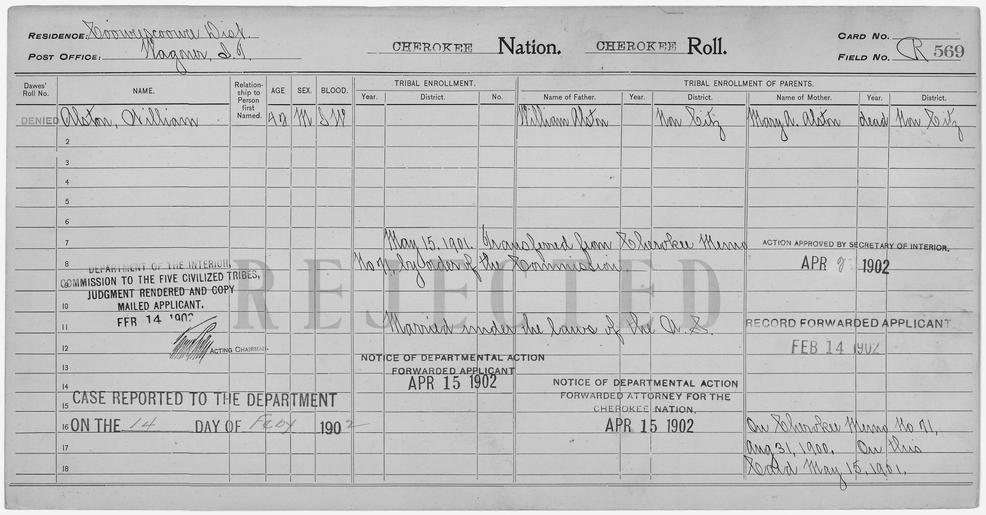 RESIDENCE: Cooweescoowee Dist.
POST OFFICE: Wagner, I.T.
CHEROKEE Nation. CHEROKEE Roll.
CARD NO.
FIELD NO. R 569
Dawes' Roll No.
NAME.
Relationship to Person first Named.
AGE
SEX.
BLOOD.
TRIBAL ENROLLMENT.
Year. District. No.
TRIBAL ENROLLMENT OF PARENTS.
Name of Father. Year. District. Name of Mother. Year. District.
DENIED Alston, William 42 M I W William Alston Non Citz Mary A. Alston dead Non Citz
2
3
4
5
6
7 May 15, 1901. Transferred from Cherokee Memo
8 No 71, by order of the Commission.
9
10
11 Married under the laws of the U. S.
12
13
14
15
16
17
18
REJECTED
DEPARTMENT OF THE INTERIOR,
COMMISSION TO THE FIVE CIVILIZED TRIBES,
JUDGMENT RENDERED AND COPY
MAILED APPLICANT.
FEB 14 1902
ACTING CHAIRMAN.
ACTION APPROVED BY SECRETARY OF INTERIOR.
APR 1902
RECORD FORWARDED APPLICANT
FEB 14 1902
NOTICE OF DEPARTMENTAL ACTION
FORWARDED APPLICANT
APR 15 1902
CASE REPORTED TO THE DEPARTMENT
ON THE 14 DAY OF Feby 1902
NOTICE OF DEPARTMENTAL ACTION
FORWARDED ATTORNEY FOR THE
CHEROKEE NATION.
APR 15 1902
On Cherokee Memo No 71,
Aug 31, 1900. On this
Card May 15, 1901.